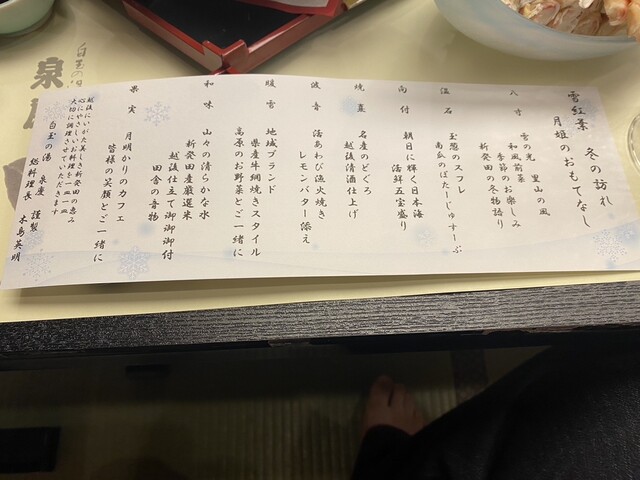 雪紅葉 冬の訪れ
月姫のおもてなし
八寸 雪の光 里山の風
和風前菜
季節のお楽しみ
新発田の冬物語り
温石 玉葱のスフレ
南瓜のぽたーじゅすーぷ
向付 朝日に輝く日本海
活鮮五宝盛り
焼蓋 名産のどぐろ
越後清酒仕上げ
波音 活あわび漁火焼き
レモンバター添え
暖雪 地域ブランド
県産牛網焼きスタイル
高原のお野菜とご一緒に
和味 山々の清らかな水
新発田産厳選米
越後仕立て御御御付
田舎の香物
果実 月明かりのカフェ
皆様の笑顔とご一緒に
越後にいがた美しき新発田の恵み
心にやさしいお料理を一皿一皿
大切に調理させていただきます
白玉の湯 泉慶 謹製
総料理長 木島英明
白玉の湯
泉